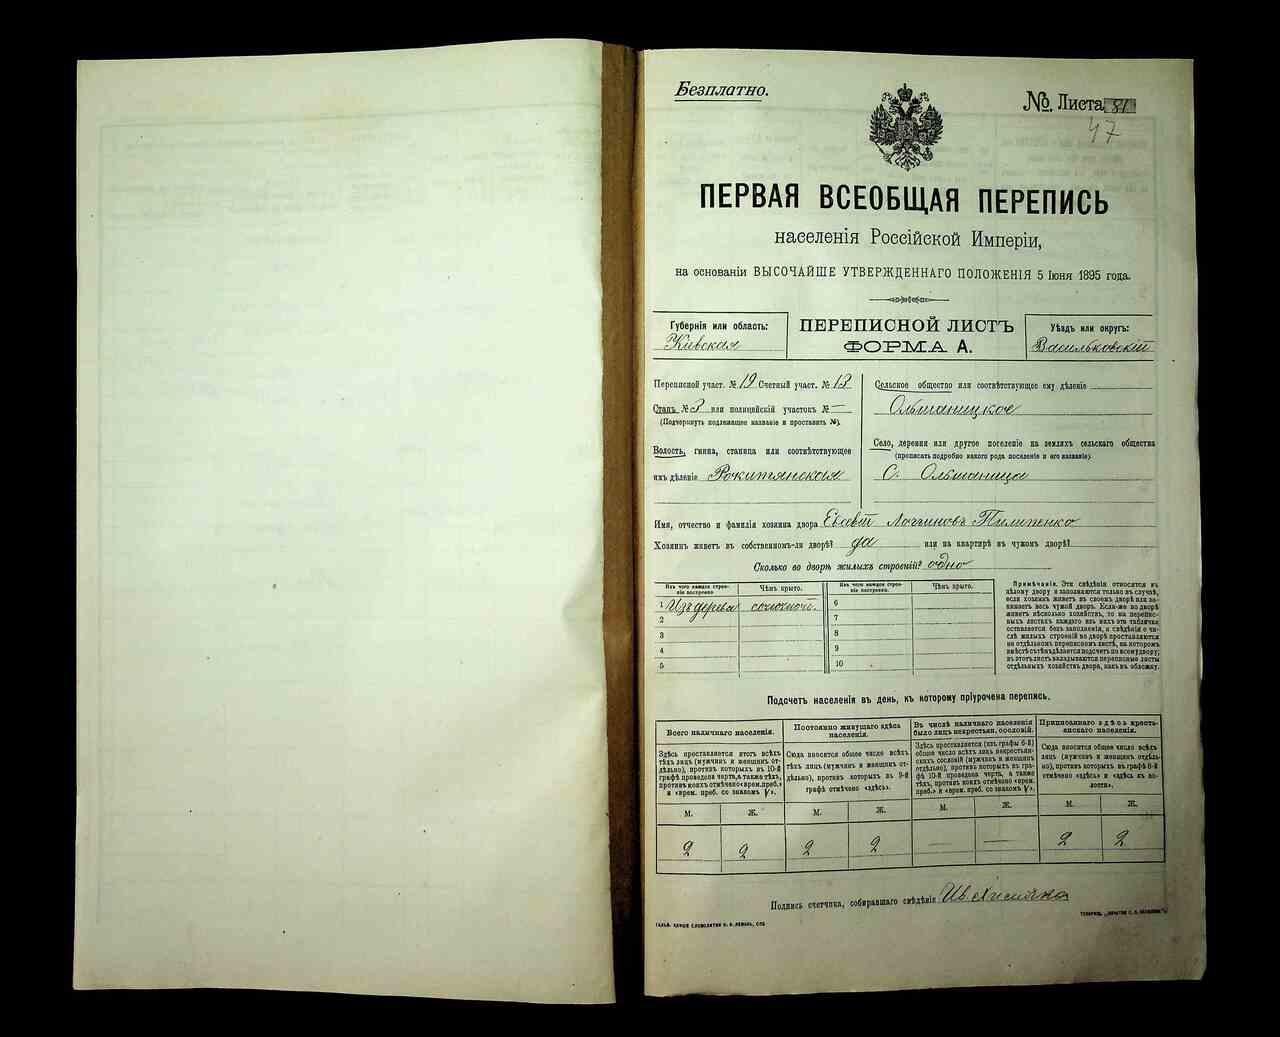 Безплатно.
№. Листа 81
47
ПЕРВАЯ ВСЕОБЩАЯ ПЕРЕПИСЬ
населенія Россійской Имперіи,
на основаніи ВЫСОЧАЙШЕ УТВЕРЖДЕННАГО ПОЛОЖЕНІЯ 5 Іюня 1895 года.
Губернія или область:
Кіевская
ПЕРЕПИСНОЙ ЛИСТЪ
ФОРМА А.
Уѣздъ или округъ:
Васильковскій
Переписной участ. № 19 Счетный участ. № 13
Станъ № 3 или полицейскій участокъ № —
(Подчеркнуть подлежащее названіе и проставить №).
Волость, гмина, станица или соотвѣтствующее
имъ дѣленіе Рокитянская
Сельское общество или соотвѣтствующее ему дѣленіе
Ольшаницкое
Село, деревня или другое поселеніе на земляхъ сельскаго общества
(прописать подробно какого рода поселеніе и его названіе).
С. Ольшаница
Имя, отчество и фамилія хозяина двора Логиновъ Пилипенко
Хозяинъ живетъ въ собственномъ-ли дворѣ? да или на квартирѣ въ чужомъ дворѣ?
Сколько во дворѣ жилыхъ строеній? одно
Изъ чего каждое строе-
ніе построено
Чѣмъ крыто.
Изъ чего каждое строе-
ніе построено.
Чѣмъ крыто.
1 Изъ дерева соломой.
2
3
4
5
6
7
8
9
10
Примѣчанія. Эти свѣдѣнія относятся къ
цѣлому двору и заполняются только въ случаѣ,
если хозяинъ живетъ въ своемъ дворѣ или за-
нимаетъ весь чужой дворъ. Если-же во дворѣ
живетъ нѣсколько хозяйствъ, то на перепис-
ныхъ листахъ каждаго изъ нихъ эта табличка
оставляется безъ заполненія, а свѣдѣнія о чи-
слѣ жилыхъ строеній во дворѣ проставляются
на отдѣльномъ переписномъ листѣ, на которомъ
вмѣстѣ съ тѣмъ дѣлается подсчетъ по всему двору;
въ этотъ листъ вкладываются переписные листы
отдѣльныхъ хозяйствъ двора, какъ въ обложку.
Подсчетъ населенія въ день, къ которому пріурочена перепись.
Всего наличнаго населенія.
Здѣсь проставляется итогъ всѣхъ
тѣхъ лицъ (мужчинъ и женщинъ от-
дѣльно), противъ которыхъ въ 10-й
графѣ проведена черта, а также тѣхъ,
противъ коихъ отмѣчено «врем. преб.»
и «врем. преб. со знакомъ V».
Постоянно живущаго здѣсь
населенія.
Сюда вносится общее число всѣхъ
тѣхъ лицъ (мужчинъ и женщинъ от-
дѣльно), противъ которыхъ въ 9-й
графѣ отмѣчено «здѣсь».
Въ числѣ наличнаго населенія
было лицъ некрестьян. сословій.
Здѣсь проставляется (изъ графы 6-й)
общее число всѣхъ лицъ некрестьян-
скихъ сословій (мужчинъ и женщинъ
отдѣльно), противъ которыхъ въ гра-
фѣ 10-й проведена черта, а также
тѣхъ, противъ коихъ отмѣчено «врем.
преб.» и «врем. преб. со знакомъ V».
Приписаннаго здѣсь кресть-
янскаго населенія.
Сюда вносится общее число всѣхъ
лицъ (мужчинъ и женщинъ отдѣль-
но), противъ которыхъ въ графѣ 8-й
отмѣчено «здѣсь» и «здѣсь къ во-
лости».
М. Ж. М. Ж. М. Ж. М. Ж.
2 2 2 2 — — 2 2
Подпись счетчика, собиравшаго свѣдѣнія Ив.